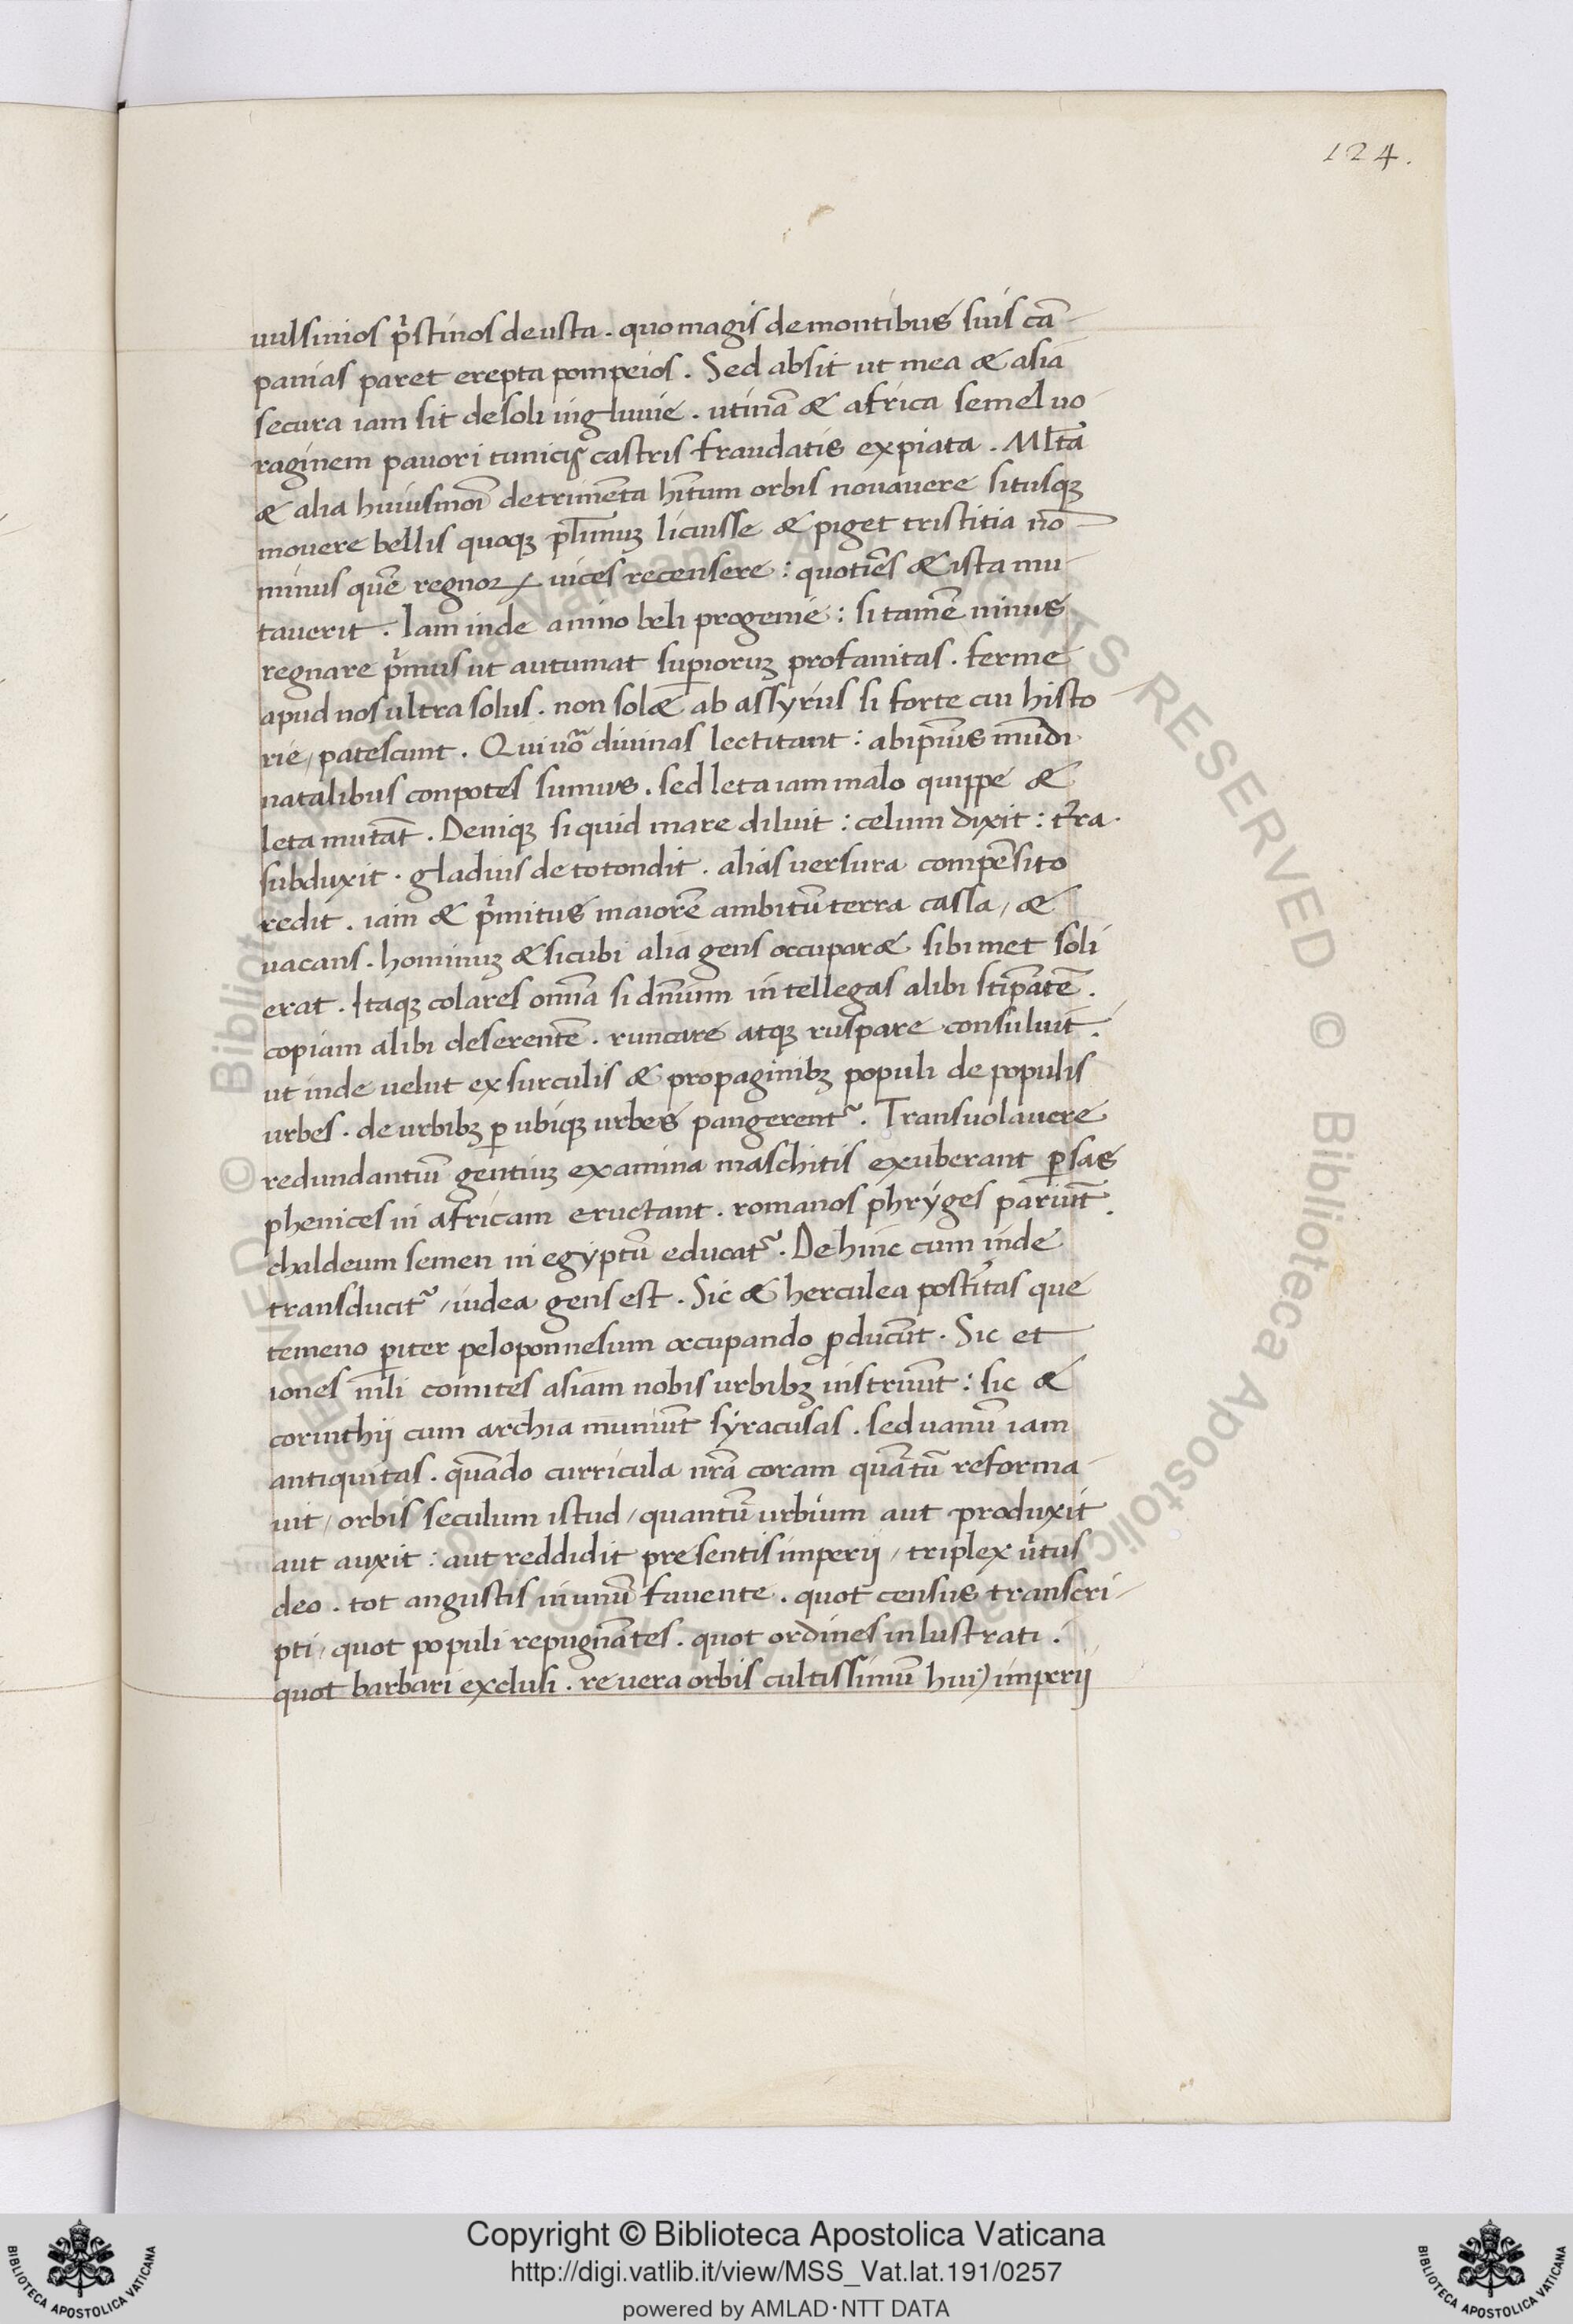 124.
uulsinios p̄stinos deusta. quo magis de montibus suis cā
panias paret erepta pompeios. Sed absit ut mea & asia
secura iam sit de soli ingluuie. utinā & africa semel uo
raginem pauori tunicis castris fraudatis expiata. Mlta
& alia huiusmoi detrimēta hītum orbis nouauere situsqꝫ
mouere bellis quoqꝫ pl̄imuꝫ licuisse & piget tristitia nō
minus quē regnoꝝ uices recensere: quotiēs & ista mu
tauerit. Iam inde a nino beli progenie: si tamē ninus
regnare p̄mus ut autumat supiorum profanitas. ferme
apud nos ultra solus. non sol& ab assyriis si forte cui histo
rie, patescunt. Qui uō diuinas lectitant: ab ip̄ius mūdi
natalibus conpotes sumus. sed leta iam malo quippe &
leta mutāt. Deniqꝫ si quid mare diluit: celum dixit: t̄ra
subduxit. gladius detotondit. alias uersura compēsito
redit. iam & p̄mitus maiorē ambitū terra cassa, &
uacans. hominuꝫ & sicubi alia gens occupar& sibimet soli
erat. Itaqꝫ colares omīa si dn̄ium intellegas alibi stipātē.
copiam alibi deserentē. runcare atqꝫ ruspare consuluit.
ut inde uelut ex surculis & propaginibꝫ populi de populis
urbes. de urbibꝫ ꝑ ubiqꝫ urbes pangerentᷣ. Transuolauere
redundantiū gentiuꝫ examina maschitis exuberant ꝑsas
phenices in africam eructant. romanos phryges pariūt.
chaldeum semen in egyptū educatᷣ. Dehinc cum inde
transducitᷣ, iudea gens est. Sic & herculea postītas que
temeno ꝑiter peloponnesum occupando ꝓducūt. Sic et
iones nīli comites asiam nobis urbibꝫ instruūt: sic &
corinthij cum archia muniūt syracusas. sed uanū iam
antiquitas. quādo curricula nrā coram quātū reforma
uit, orbis seculum istud, quantū urbium aut produxit
aut auxit: aut reddidit presentis imperij, triplex ūtus
deo. tot angustis in unū fauente. quot census transcri
pti, quot populi repugnātes. quot ordines inlustrati.
quot barbari exclusi. re uera orbis cultissimū huiꝰ imperij
© Biblioteca Apostolica Vaticana
Copyright © Biblioteca Apostolica Vaticana
http://digi.vatlib.it/view/MSS_Vat.lat.191/0257
powered by AMLAD·NTT DATA
BIBLIOTECA APOSTOLICA VATICANA
BIBLIOTECA APOSTOLICA VATICANA